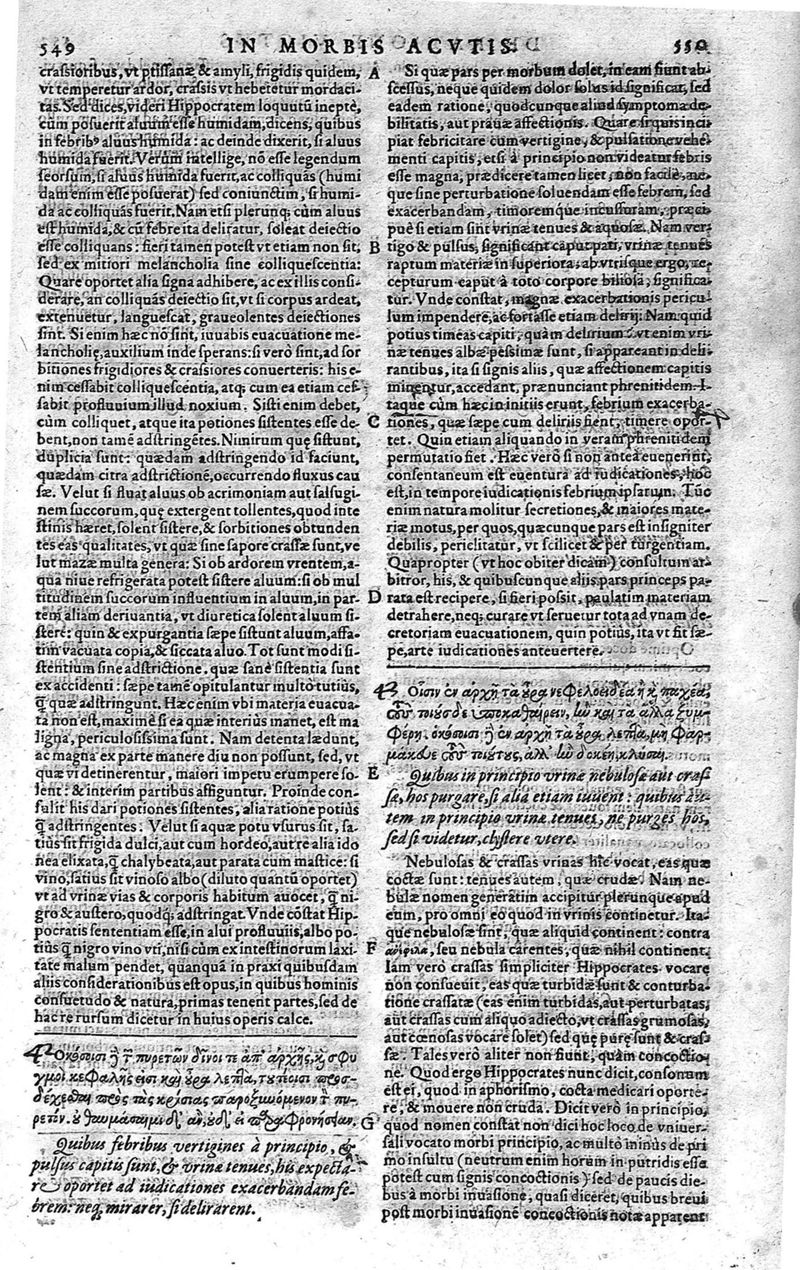 549 IN MORBIS ACVTIS. 550
crassioribus, vt ptissanæ & amyli, frigidis quidem,
vt temperetur ardor, crassis vt hebetetur mordaci-
tas. Sed dices, videri Hippocratem loquutū ineptè,
cùm posuerit aluum esse humidam, dicens, quibus
in febribꝰ aluus humida: ac deinde dixerit, si aluus
humida fuerit. Verùm intellige, nō esse legendum
seorsum, si aluus humida fuerit, ac colliquās (humi
dam enim esse posuerat) sed coniunctim, si humi-
da ac colliquās fuerit. Nam etsi plerunq; cùm aluus
est humida, & cū febre ita delitatur, soleat deiectio
esse colliquans: fieri tamen potest vt etiam non sit,
sed ex mitiori melancholia sine colliquescentia:
Quare oportet alia signa adhibere, ac ex illis consi-
derare, an colliquās deiectio sit, vt si corpus ardeat,
extenuetur, languescat, graueolentes deiectiones
sint. Si enim hæc nō sint, iuuabis euacuatione me-
lancholię, auxilium inde sperans: si verò sint, ad sor
bitiones frigidiores & crassiores conuerteris: his e-
nim cessabit colliquescentia, atq; cum ea etiam ces-
sabit profluuium illud noxium. Sisti enim debet,
cùm colliquet, atque ita potiones sistentes esse de-
bent, non tamē adstringētes. Nimirum quę sistunt,
duplicia sunt: quædam adstringendo id faciunt,
quædam citra adstrictionē, occurrendo fluxus cau
sæ. Velut si fluat aluus ob acrimoniam aut salsugi-
nem succorum, quę extergent tollentes, quod inte
stinis hæret, solent sistere, & sorbitiones obtunden
tes eas qualitates, vt quæ sine sapore crassæ sunt, ve
lut mazæ multa genera: Si ob ardorem vrentem, a-
qua niue refrigerata potest sistere aluum: si ob mul
titudinem succorum influentium in aluum, in par-
tem aliam deriuantia, vt diuretica solent aluum si-
stere: quin & expurgantia sæpe sistunt aluum, affa-
tim vacuata copia, & siccata aluo. Tot sunt modi si-
stentium sine adstrictione. quæ sanè sistentia sunt
ex accidenti: sæpe tamē opitulantur multò tutiùs,
q̃ quæ adstringunt. Hæc enim vbi materia euacua-
ta non est, maximè si ea quæ interiùs manet, est ma
ligna, periculosissima sunt. Nam detenta lædunt,
ac magna ex parte manere diu non possunt, sed, vt
quæ vi detinerentur, maiori impetu erumpere so-
lent: & interim partibus affiguntur. Proinde con-
sulit his dari potiones sistentes, alia ratione potiùs
q̃ adstringentes: Velut si aquæ potu vsurus sit, sa-
tiùs sit frigida dulci, aut cum hordeo, aut re alia ido
nea elixata, q̃ chalybeata, aut parata cum mastice: si
vino, satiùs sit vinoso albo (diluto quantū oportet)
vt ad vrinæ vias & corporis habitum auocet, q̃ ni-
gro & austero, quodq; adstringat. Vnde cōstat Hip-
pocratis sententiam esse, in alui profluuiis, albo po-
tiùs q̃ nigro vino vti, nisi cùm ex intestinorum laxi-
tate malum pendet, quanquā in praxi quibusdam
aliis considerationibus est opus, in quibus hominis
consuetudo & natura, primas tenent partes, sed de
hac re rursum dicetur in huius operis calce.
42 Οκόσοισι
Quibus febribus vertigines à principio, &
pulsus capitis sunt, & vrinæ tenues, his expecta-
re oportet ad iudicationes exacerbandam fe-
brem: neq; mirarer, si delirarent.
A Si quæ pars per morbum dolet, in eam fiunt ab-
scessus, neque quidem dolor solus id significat, sed
eadem ratione, quodcunque aliud symptoma de-
bilitatis, aut prauæ affectionis. Quare si quis inci-
piat febricitare cum vertigine, & pulsatione vehe-
menti capitis, etsi à principio non videatur febris
esse magna, prædicere tamen licet, non facilè, ne-
que sine perturbatione soluendam esse febrem, sed
exacerbandam, timoremque incussuram, præci-
puè si etiam sint vrinæ tenues & aquosæ. Nam ver-
B tigo & pulsus, significant caput pati, vrinæ tenues
raptum materiæ in superiora: ab vtrisque ergo, re-
cepturum caput à toto corpore biliosa, significa-
tur. Vnde constat, magnæ exacerbationis pericu-
lum impendere, ac fortasse etiam delirij: Nam quid
potius timeas capiti, quàm delirium? vt enim vri-
næ tenues albæ pessimæ sunt, si appareant in deli-
rantibus, ita si signis aliis, quæ affectionem capitis
minentur, accedant, prænunciant phrenitidem. I-
taque cùm hæc in initiis erunt, febrium exacerba-
C tiones, quæ sæpe cum deliriis fient, timere opor-
tet. Quin etiam aliquando in veram phrenitidem
permutatio fiet. Hæc verò si non antea euenerint,
consentaneum est euentura ad iudicationes, hoc
est, in tempore iudicationis febrium ipsarum. Tūc
enim natura molitur secretiones, & maiores mate-
riæ motus, per quos, quæcunque pars est insigniter
debilis, periclitatur, vt scilicet & per turgentiam.
Quapropter (vt hoc obiter dicam) consultum ar-
bitror, his, & quibuscunque aliis pars princeps pa-
D rata est recipere, si fieri possit, paulatim materiam
detrahere, neq; curare vt seruetur tota ad vnam de-
cretoriam euacuationem, quin potiùs, ita vt fit sæ-
pe, arte iudicationes anteuertere.
43
E Quibus in principio vrinæ nebulosæ aut cras-
sæ, hos purgare, si alia etiam iuuent: quibus au-
tem in principio vrinæ tenues, ne purges hos,
sed si videtur, clystere vtere.
Nebulosas & crassas vrinas hîc vocat, eas quæ
coctæ sunt: tenues autem, quæ crudæ. Nam ne-
bulæ nomen generatim accipitur plerunque apud
eum, pro omni eo quod in vrinis continetur. Ita-
que nebulosæ sint, quæ aliquid continent: contra
F seu nebula carentes, quæ nihil continent.
Iam verò crassas simpliciter Hippocrates vocare
non consueuit, eas quæ turbidæ sunt & conturba-
tione crassatæ (eas enim turbidas, aut perturbatas,
aut crassas cum aliquo adiecto, vt crassas grumosas,
aut cœnosas vocare solet) sed quę purę sunt & cras-
sæ. Tales verò aliter non fiunt, quàm concoctio-
ne. Quod ergo Hippocrates nunc dicit, consonum
est ei, quod in aphorismo, cocta medicari oporte-
re, & mouere non cruda. Dicit verò in principio,
G quod nomen constat non dici hoc loco de vniuer-
sali vocato morbi principio, ac multò minùs de pri
mo insultu (neutrum enim horum in putridis esse
potest cum signis concoctionis) sed de paucis die-
bus à morbi inuasione, quasi diceret, quibus breui
post morbi inuasionē concoctionis notæ apparent